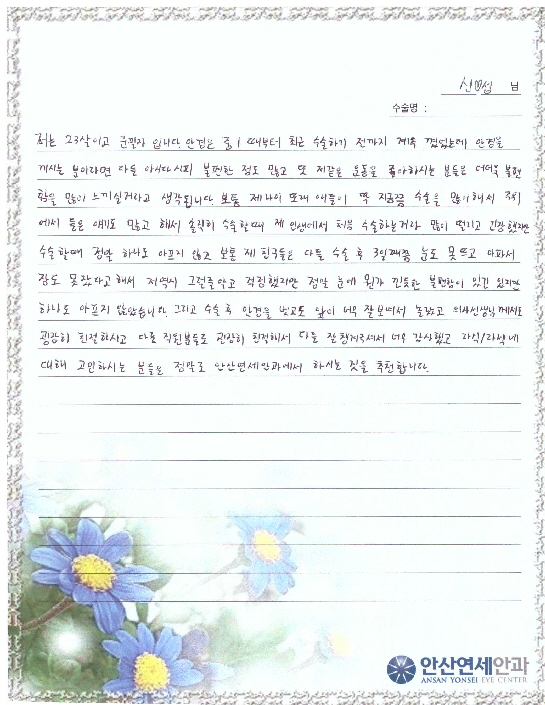 신 섭 님
수술명 :
저는 23살이고 군필자 입니다 안경은 중1 때부터 최근 수술하기 전까지 계속 꼈었는데 안경을
끼시는 분이라면 다들 아시다시피 불편한 점도 많고 또 저같은 운동을 좋아하시는 분들은 더더욱 불편
함을 많이 느끼실거라고 생각됩니다 보통 제 나이 또래 애들이 딱 지금쯤 수술을 많이해서 주위
에서 들은 얘기도 많고 해서 솔직히 수술할때 제 인생에서 처음 수술하는거라 많이 떨리고 긴장했지만
수술할때 정말 하나도 아프지 않고 보통 제 친구들은 다들 수술 후 3일까지 눈도 못뜨고 아파서
잠도 못잤다고 해서 저역시 그럴줄알고 걱정했지만 정말 눈에 뭔가 낀듯한 불편함이 있긴 있지만
하나도 아프지 않았습니다 그리고 수술 후 안경을 벗고도 앞이 너무 잘보여서 놀랐고 의사선생님께서도
굉장히 친절하시고 다른 직원분들도 굉장히 친절해서 다들 잘 챙겨주셔서 너무 감사했고 라식/라섹에
대해 고민하시는 분들은 정말로 안산연세안과에서 하시는 것을 추천합니다.
안산연세안과
ANSAN YONSEI EYE CENTER